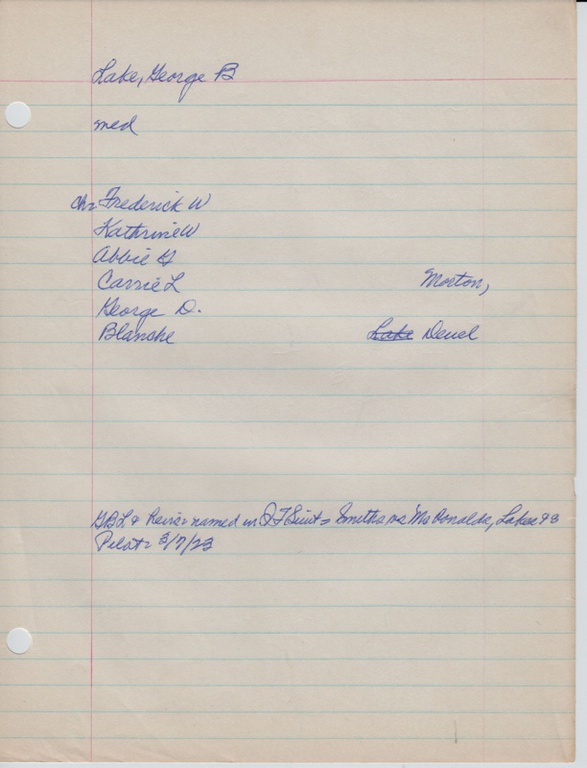 Lake, George B
med
ch= Frederick W
Kathrine W
Abbie G
Carrie L Morton,
George D.
Blanche Lake Deuel
GBL & heirs= named in QT Suit= Smiths vs McDonalds, Lakes
Pilot= 3/7/23